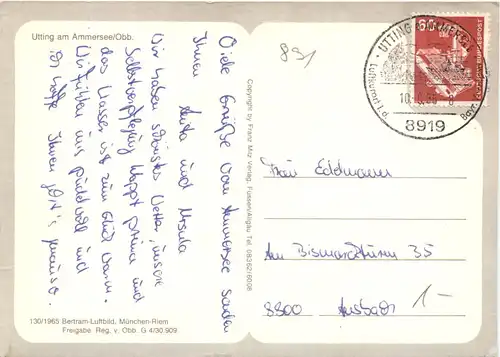 Utting am Ammersee/Obb.
Viele Grüße vom Ammersee senden
Ihnen Anita und Ursula
Wir haben schönstes Wetter, unsere
Selbstverpflegung klappt prima und
das Wasser ist zum Glück warm.
Wir fühlen uns pudelwohl und
ich hoffe Ihnen geht's genauso.
130/1965 Bertram-Luftbild, München-Riem
Freigabe: Reg. v. Obb. G 4/30.909
Copyright by Franz Milz Verlag, Füssen/Allgäu Tel. 08362/6008
891
UTTING a. AMMERSEE
Luftkurort i. d.
8919
60
DEUTSCHE BUNDESPOST
Frau Erdmann
Am Bismarckturm 35
8800 Ansbach
1-